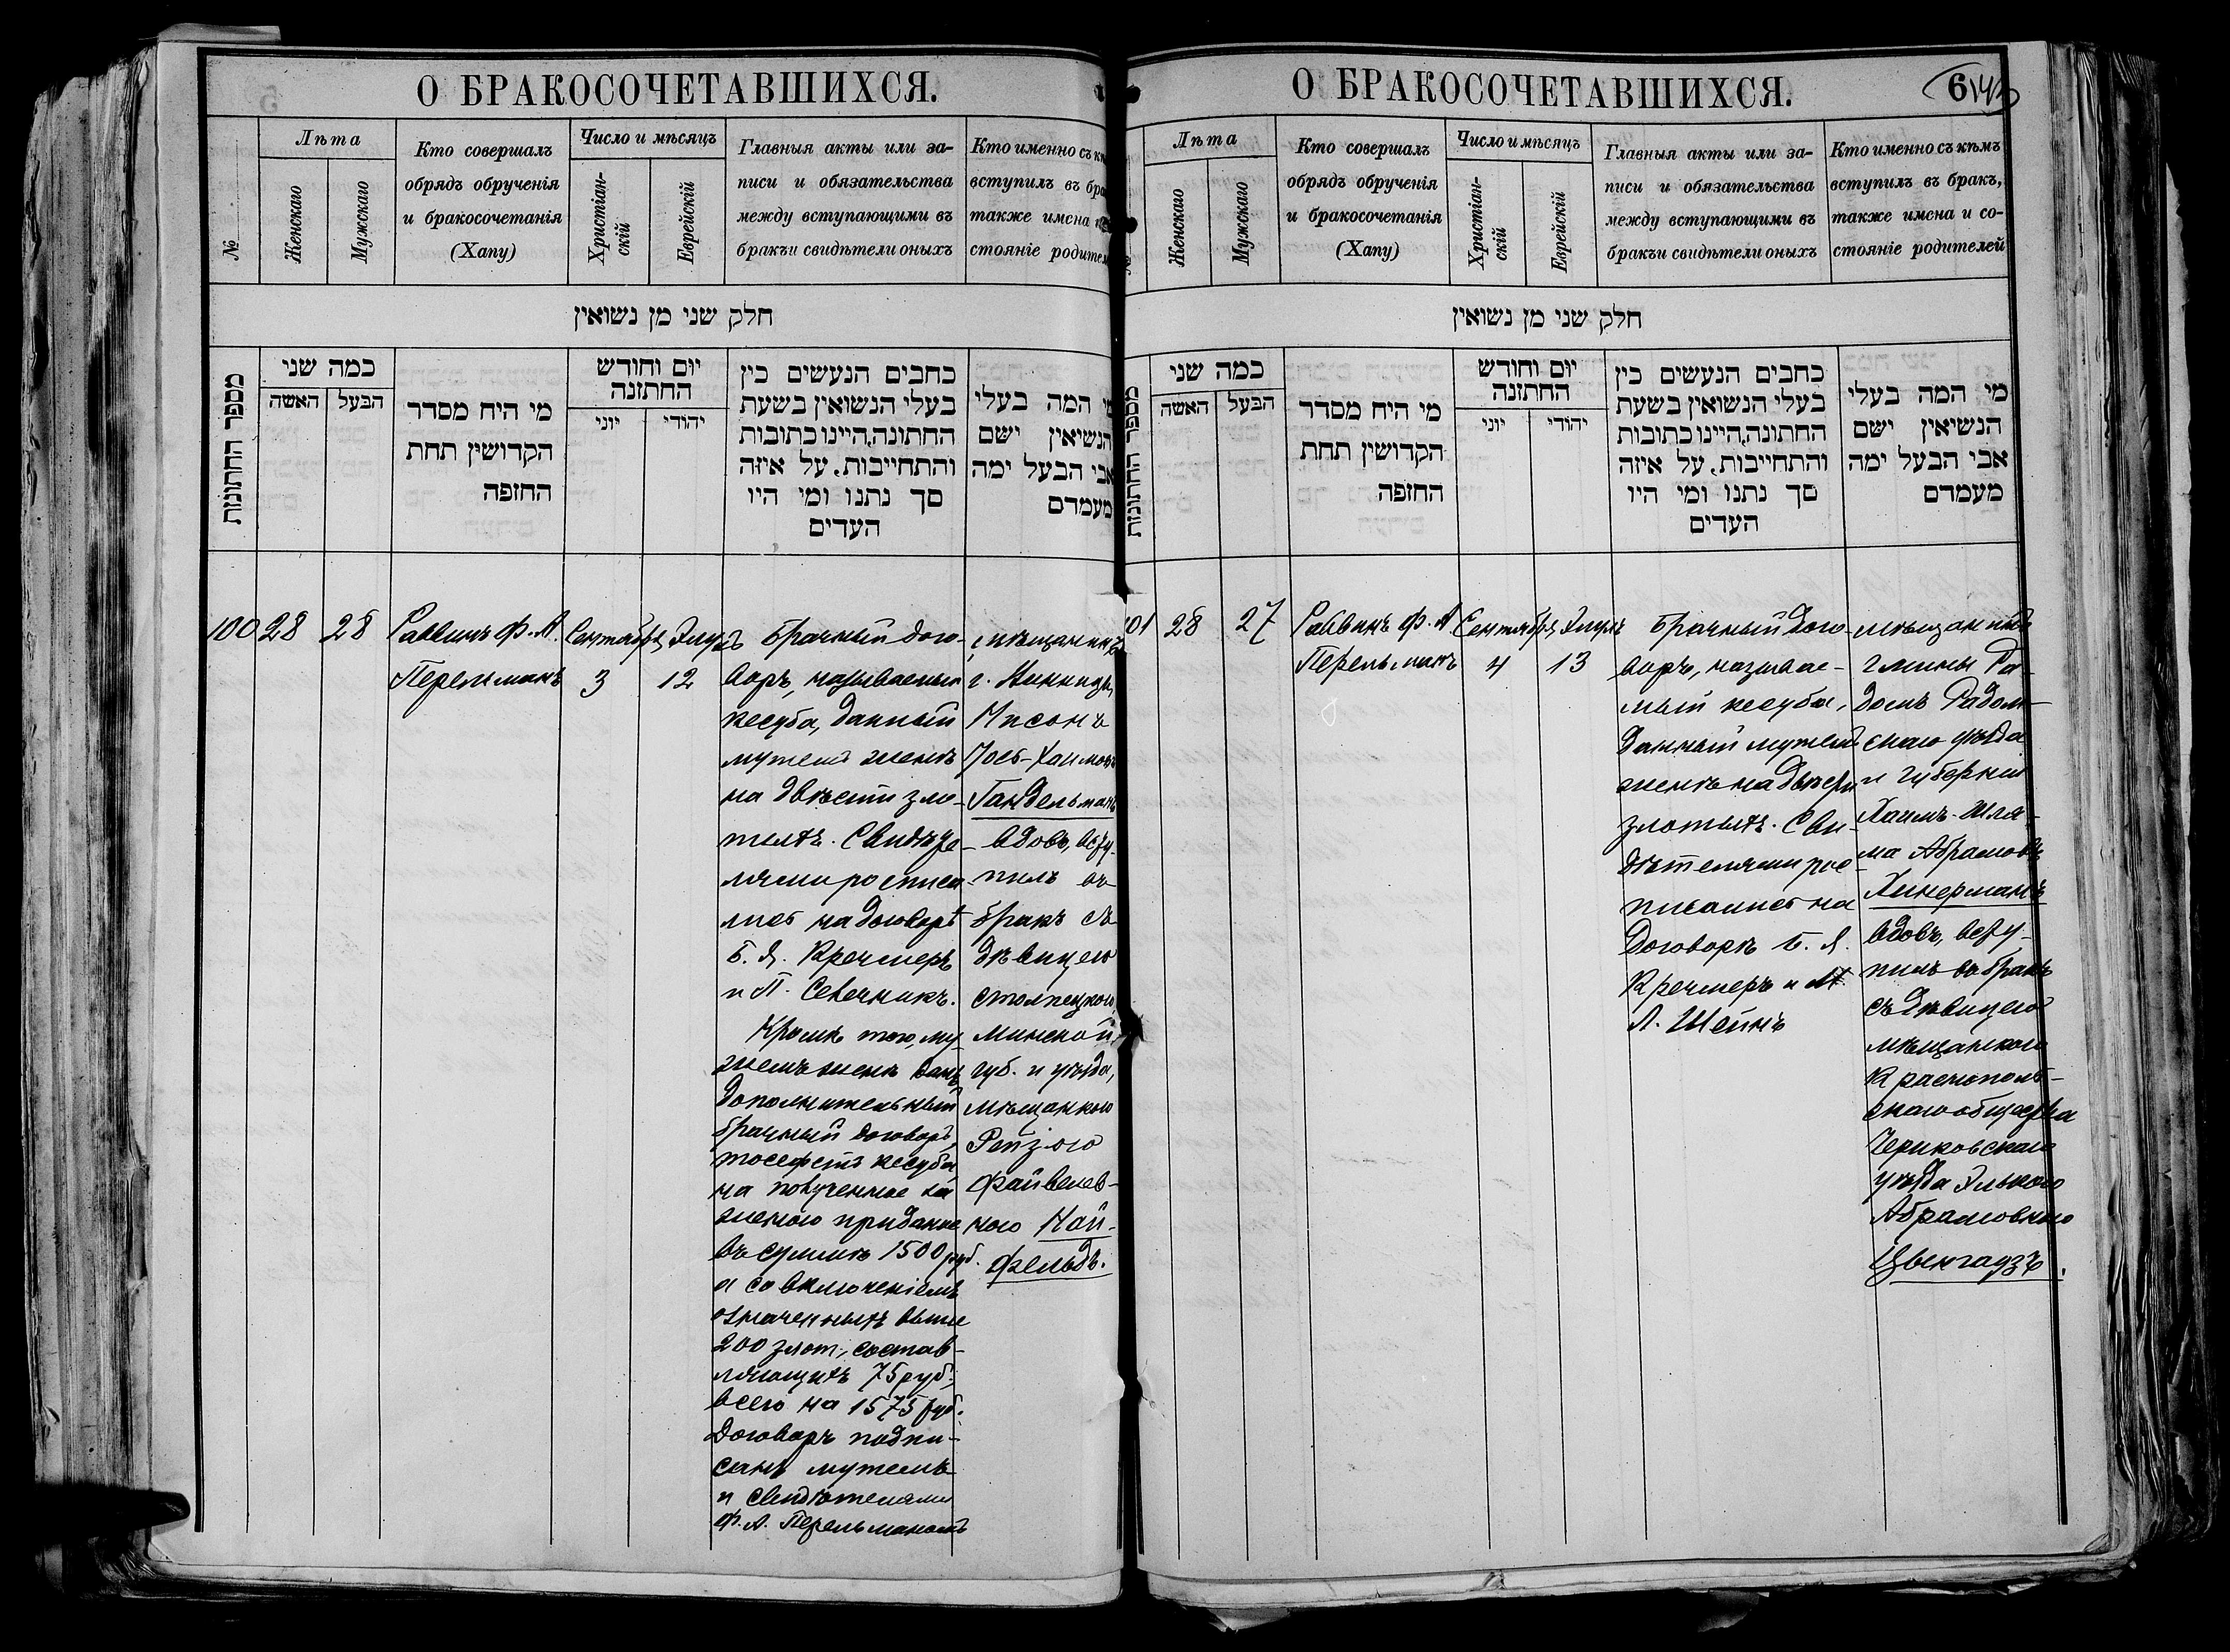 О БРАКОСОЧЕТАВШИХСЯ.
№
Лѣта
Женскаго
Мужскаго
Кто совершалъ
обрядъ обрученія
и бракосочетанія
(Хапу)
Число и мѣсяцъ
Христіан-
скій
Еврейскій
Главныя акты или за-
писи и обязательства
между вступающими въ
бракъи свидѣтели оныхъ
Кто именно съ
вступилъ въ
также имена
стояніе
חלק שני מן נשואין
מספר החתונות
כמה שני
האשה
הבעל
מי היח מסדר
הקדושין תחת
החזפה
יום וחודש
החתזנה
יוני
יהודי
כחבים הנעשים כין
בעלי הנשואין בשעת
החתונה,היינו כתובות
והתחייבות, על איזה
סך נתנו ומי היו
העדים
מי המה בעלי
הנשיאין ישם
אבי הבעל ימה
מעמדם
100
28
28
Раввинъ Ф. А.
Перельманъ
Сентябрь
3
Элулъ
12
Брачный дого-
воръ, называемый
кесуба, данный
мужемъ женѣ
на двѣсти зло-
тыхъ. Свидѣте-
лями росписа-
лись на договорѣ
Б. Я. Кречмеръ
и П. Севечникъ.
Кромѣ того, му-
жемъ женѣ данъ
дополнительный
брачный договоръ,
тосефетъ кесуба
на полученное за
женою приданое
въ суммѣ 1500 руб.
а со включеніемъ
означенныхъ выше
200 злот., состав-
ляющихъ 75 руб.,
всего на 1575 руб.
Договоръ подпи-
санъ мужемъ
и свидѣтелями
Ф. А. Перельманомъ
мѣщанинъ
г. Винницы,
Нисонъ
Іось-Хаимовъ
Гандельманъ
вдовъ, всту-
пилъ въ
бракъ съ
дѣвицею
столпецкою,
Минской
губ. и уѣзда,
мѣщанкою
Рейзою
Файвелев-
ною Най-
фельдъ.
О БРАКОСОЧЕТАВШИХСЯ.
6
Лѣта
Женскаго
Мужскаго
Кто совершалъ
обрядъ обрученія
и бракосочетанія
(Хапу)
Число и мѣсяцъ
Христіан-
скій
Еврейскій
Главныя акты или за-
писи и обязательства
между вступающими въ
бракъи свидѣтели оныхъ
Кто именно съ кѣмъ
вступилъ въ бракъ,
также имена и со-
стояніе родителей
חלק שני מן נשואין
מספר החתונות
כמה שני
האשה
הבעל
מי היח מסדר
הקדושין תחת
החזפה
יום וחודש
החתזנה
יוני
יהודי
כחבים הנעשים כין
בעלי הנשואין בשעת
החתונה,היינו כתובות
והתחייבות, על איזה
סך נתנו ומי היו
העדים
מי המה בעלי
הנשיאין ישם
אבי הבעל ימה
מעמדם
101
28
27
Раввинъ Ф. А
Перельманъ
Сентябрь
4
Элулъ
13
Брачный дого-
воръ, называе-
мый кесуба,
данный мужемъ
женѣ на двѣсти
злотыхъ. Сви-
дѣтелями рос-
писались на
договорѣ Б. Я.
Кречмеръ и М.
Л. Шейнъ
мѣщанинъ
гмины Ра-
домъ Радом-
скаго уѣзда
и губерніи
Хаимъ-Шля-
ма Абрамовъ
Хинерманъ
вдовъ, всту-
пилъ въ бракъ
съ дѣвицею
мѣщанкою
Краснополь-
скаго общества
Чериковскаго
уѣзда Элькою
Абрамовною
Цвенгаузъ.